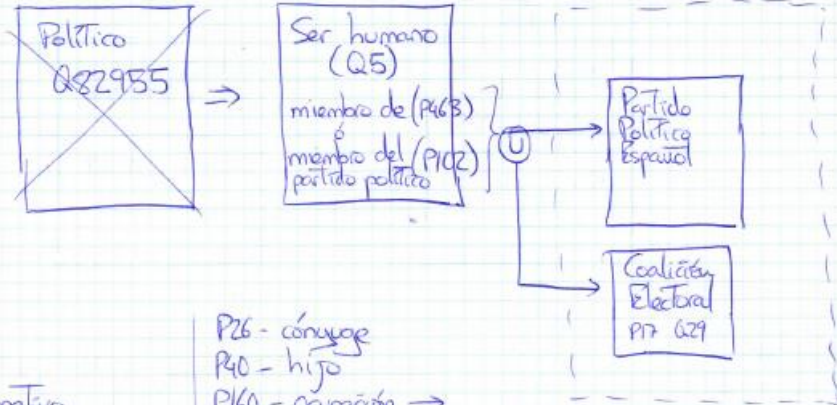 Político
Q82955
Ser humano
(Q5)
miembro de (P463)
ó
miembro del (P102)
partido político
U
Partido
Político
Español
Coalición
Electoral
P17 Q29
P26 - cónyuge
P40 - hijo